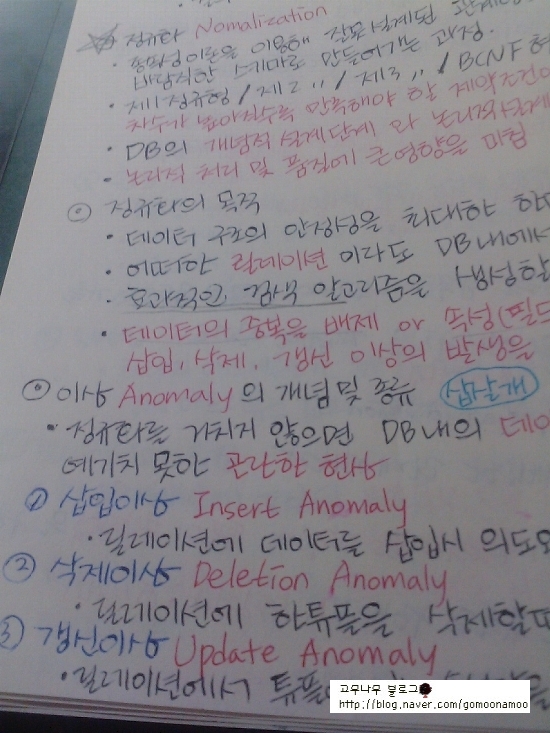 정규화 Nomalization
· 종속성이론을 이용해 잘못 설계된 관계형
바람직한 스키마로 만들어가는 과정.
· 제1정규형 / 제2 〃 / 제3 〃 / BCNF 형
차수가 높아질수록 만족해야 할 제약조건이
· DB의 개념적 설계단계 와 논리적 설계
· 논리적 처리 및 품질에 큰 영향을 미침
정규화의 목적
· 데이터 구조의 안정성을 최대화 하
· 어떠한 릴레이션 이라도 DB내에서
· 효과적인 검색 알고리즘을 생성할
· 데이터의 중복을 배제 or 속성(필드
삽입, 삭제, 갱신 이상의 발생을
이상 Anomaly 의 개념 및 종류 삽살개
· 정규화를 거치지 않으면 DB내의 데이
예기치 못한 곤란한 현상
① 삽입이상 Insert Anomaly
· 릴레이션에 데이터를 삽입시 의도와
② 삭제이상 Deletion Anomaly
· 릴레이션에 한튜플을 삭제할때
③ 갱신이상 Update Anomaly
· 릴레이션에서 튜플
고무나무 블로그
http://blog.naver.com/gomoonamoo